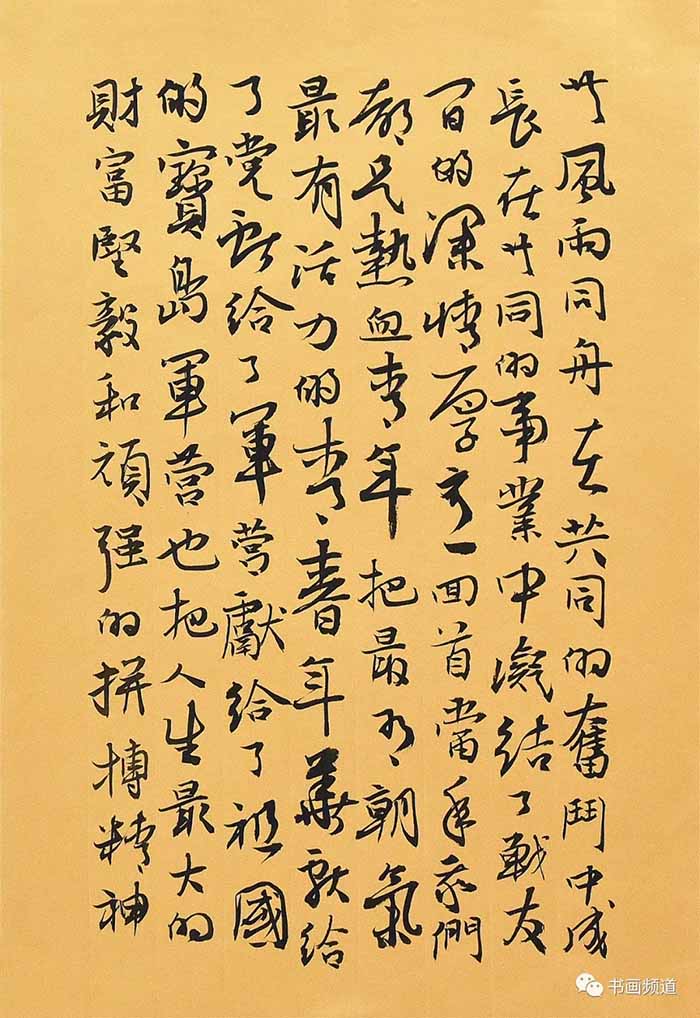 共風雨同舟在共同的奮鬥中成
長在共同的事業中凝結了戰友
間的深情厚一回首當年我們
都是熱血青年把最有朝氣
最有活力的青春年華献給
了党献給了軍营獻給了祖國
的寶島軍营也把人生最大的
財富堅毅和頑强的拼搏精神
书画频道